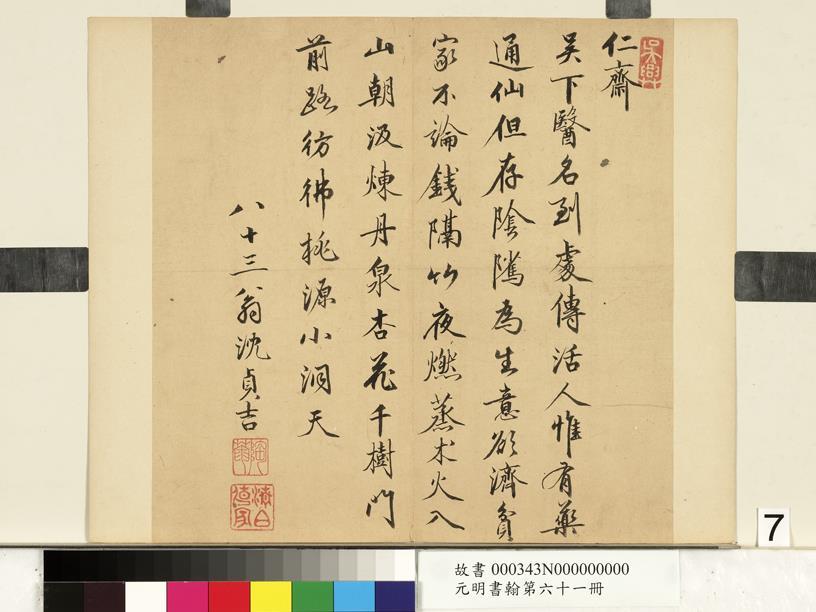 仁齋
吴下醫名到處傳活人惟有藥
通仙但存陰隲為生意欲濟貧
家不論錢隔竹夜燃蒸朮火入
山朝汲煉丹泉杏花千樹門
前路彷彿桃源小洞天
八十三翁沈貞吉
7
故書 000343N000000000
元明書翰第六十一冊